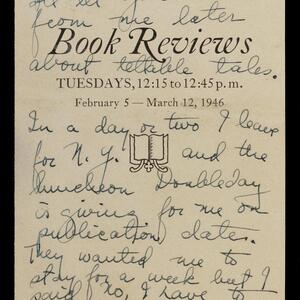 from me later
Book Reviews
about tellable tales.
TUESDAYS, 12:15 to 12:45 p.m.
February 5 — March 12, 1946
In a day or two I leave
for N.Y. and the
luncheon Doubleday
is giving for me on
publication date.
They wanted me to
stay for a week but I
said no, I have to